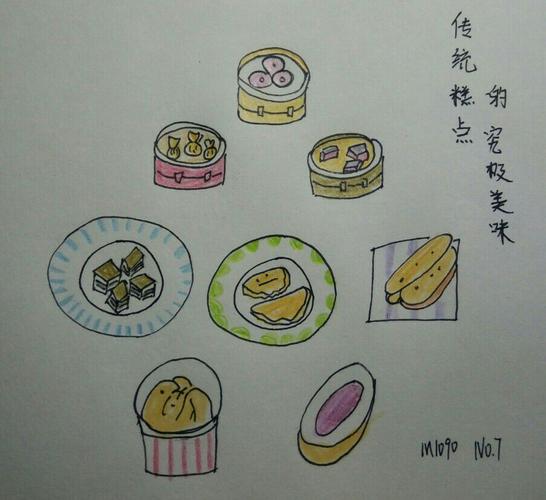 传统糕点
的究极美味
M1090 No.7